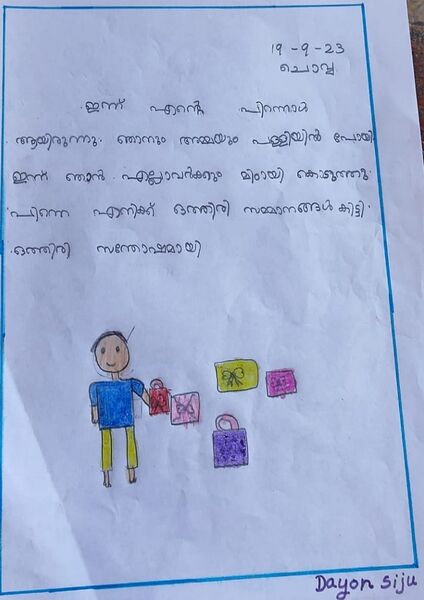 19-9-23
ചൊവ്വ
ഇന്ന് എന്റെ പിറന്നാൾ
ആയിരുന്നു. ഞാനും അമ്മയും പള്ളിയിൽ പോയി.
ഇന്ന് ഞാൻ എല്ലാവർക്കും മിഠായി കൊടുത്തു.
പിന്നെ എനിക്ക് ഒത്തിരി സമ്മാനങ്ങൾ കിട്ടി.
ഒത്തിരി സന്തോഷമായി
Dayon Siju